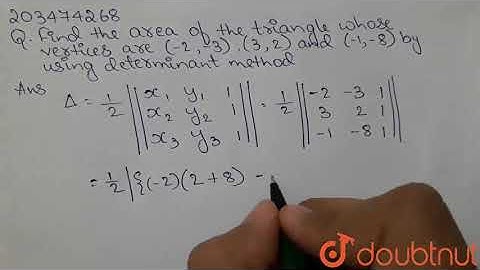 203474268
Q. Find the area of the triangle whose
vertices are (-2,-3), (3,2) and (-1,-8) by
using determinant method
Ans
Δ = 1/2 || x₁ y₁ 1 | x₂ y₂ 1 | x₃ y₃ 1 || = 1/2 || -2 -3 1 | 3 2 1 | -1 -8 1 ||
= 1/2 | { (-2)(2+8) -
doubtnut